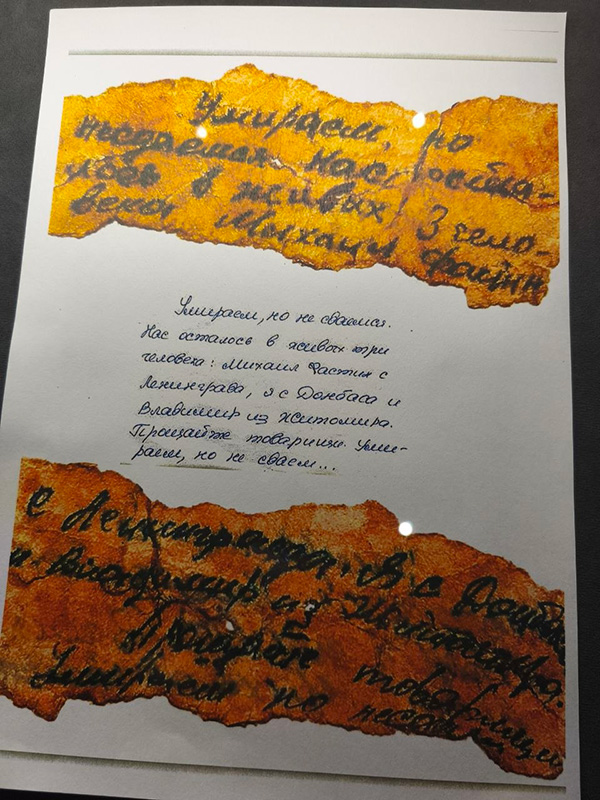 Умираем, но
несдаемся. нас
в живых 3 чело-
века Мыхаил
Умираем, но не сдаемся.
Нас осталось в живых три
человека: Михаил Фастин с
Ленинграда, я с Донбаса и
Владимир из Житомира.
Прощайте товарищи. Уми-
раем, но не сдаем...
с Ленинграда. Я с Донба
и Владимир из Житомира.
Прощайте товарищи
Умираем но